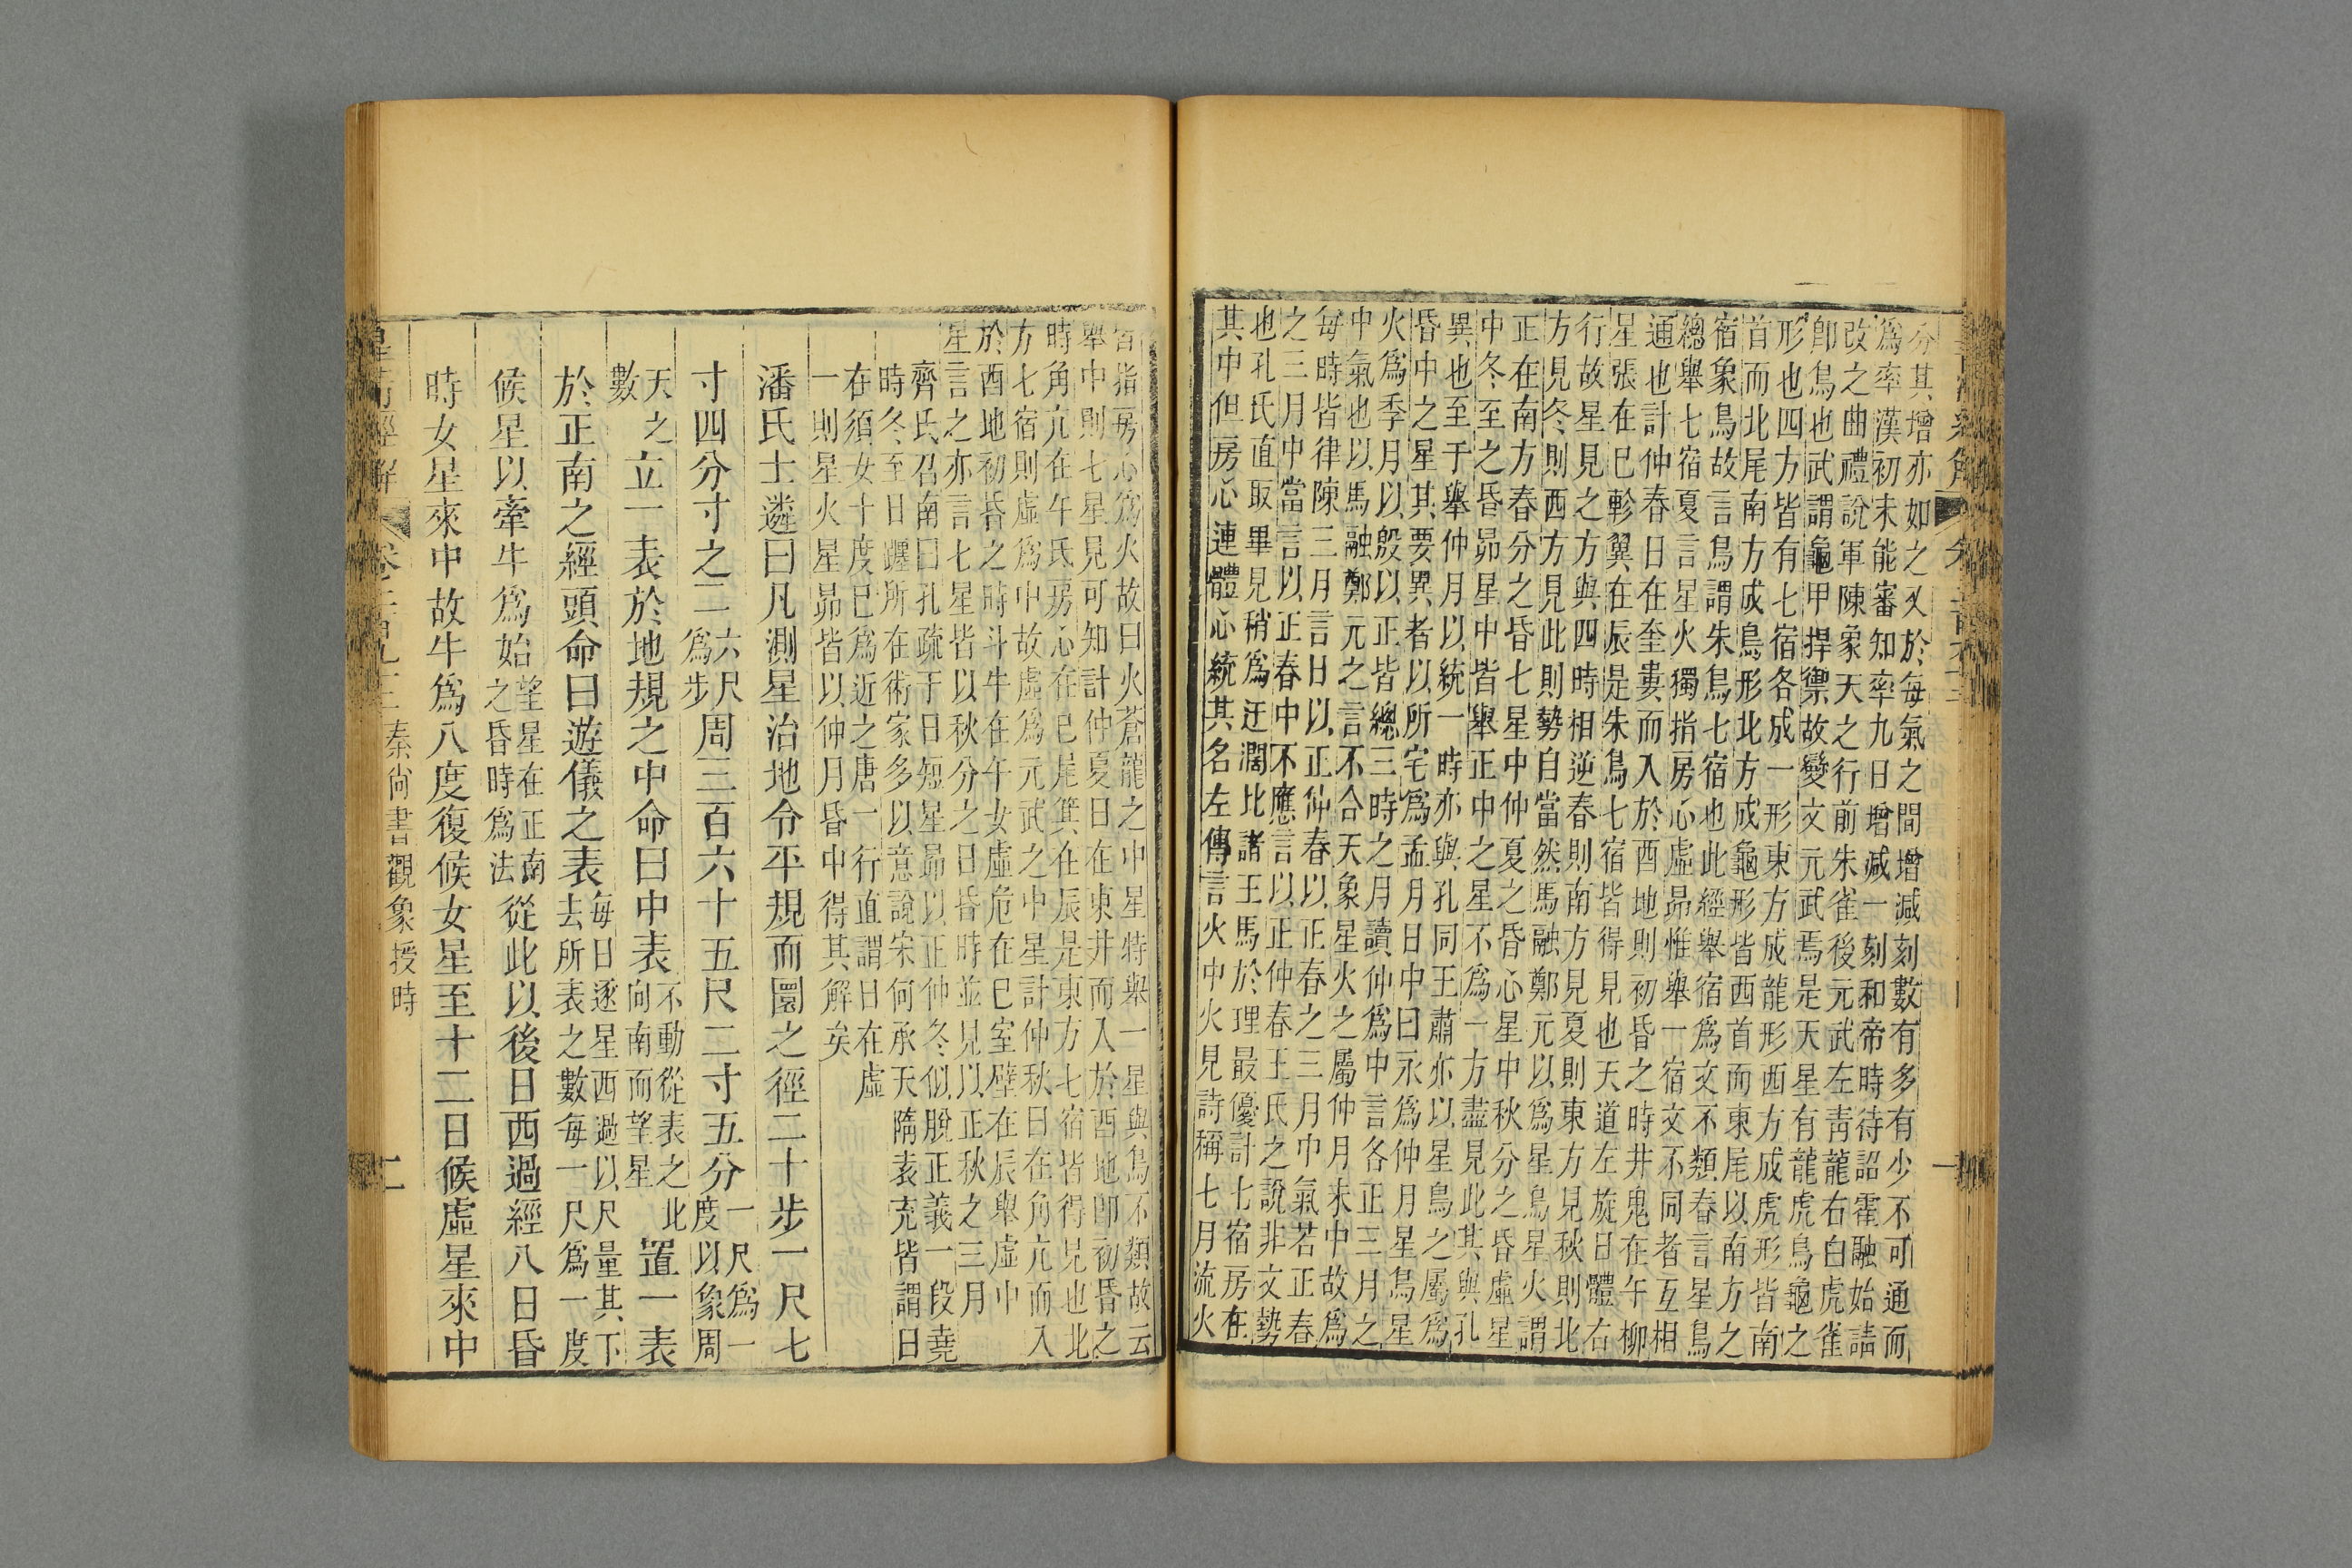 分其增亦如之又於每氣之間增減刻數有多有少不可通而
爲率漢初未能審知率九日增減一刻和帝時待詔霍融始請
改之曲禮說軍陳象天之行前朱雀後元武左靑龍右白虎雀
卽鳥也武謂龜甲捍禦故變文元武焉是天星有龍虎鳥龜之
形也四方皆有七宿各成一形東方成龍形西方成虎形皆南
首而北尾南方成鳥形北方成龜形皆西首而東尾以南方之
宿象鳥故言鳥謂朱鳥七宿也此經舉宿爲文不類春言星鳥
總舉七宿夏言星火獨指房心虛昴惟舉一宿文不同者互相
通也計仲春日在奎婁而入於酉地則初昏之時井鬼在午柳
星張在巳軫翼在辰是朱鳥七宿皆得見也天道左旋日體右
行故星見之方與四時相逆春則南方見夏則東方見秋則北
方見冬則西方見此則勢自當然馬融鄭元以爲星鳥星火謂
正在南方春分之昏七星中仲夏之昏心星中秋分之昏虛星
中冬至之昏昴星中皆舉正中之星不爲一方盡見此其與孔
異也至于舉仲月以統一時亦與孔同王肅亦以星鳥之屬爲
昏中之星其要異者以所宅爲孟月日中日永爲仲月星鳥星
火爲季月以殷以正皆總三時之月讀仲爲中言各正三月之
中氣也以馬融鄭元之言不合天象星火之屬仲月未中故爲
每時皆律陳三月言日以正仲春以正春之三月中氣若正春
之三月中當言以正春中不應言以正仲春王氏之說非文勢
也孔氏直取畢見稍爲迂闊比諸王馬於理最優計七宿房在
其中但房心連體心統其名左傳言火中火見詩稱七月流火
皆指房心爲火故曰火蒼龍之中星特舉一星與鳥不類故云
舉中則七星見可知計仲夏日在東井而入於酉地卽初昏之
時角亢在午氐房心在巳尾箕在辰是東方七宿皆得見也北
方七宿則虛爲中故虛爲元武之中星計仲秋日在角亢而入
於酉地初昏之時斗牛在午女虛危在巳室壁在辰舉虛中
星言之亦言七星皆以秋分之日昏時並見以正秋之三月
齊氏召南曰孔疏于日短星昴以正仲冬似脫正義一段堯
時冬至日躔所在術家多以意說宋何承天隋袁充皆謂日
在須女十度巳爲近之唐一行直謂日在虛
一則星火星昴皆以仲月昏中得其解矣
潘氏士遴曰凡測星治地令平規而圜之徑二十步一尺七
寸四分寸之二六尺爲步周三百六十五尺二寸五分一尺爲一度以象周
天之數立一表於地規之中命曰中表不動從表之北向南而望星置一表
於正南之經頭命曰遊儀之表每日逐星西過以尺量其下去所表之數每一尺爲一度
候星以牽牛爲始望星在正南之昏時爲法從此以後日西過經八日昏
時女星來中故牛爲八度復候女星至十二日候虛星來中
皇淸經解 卷二百九十三 秦尙書觀象授時 二